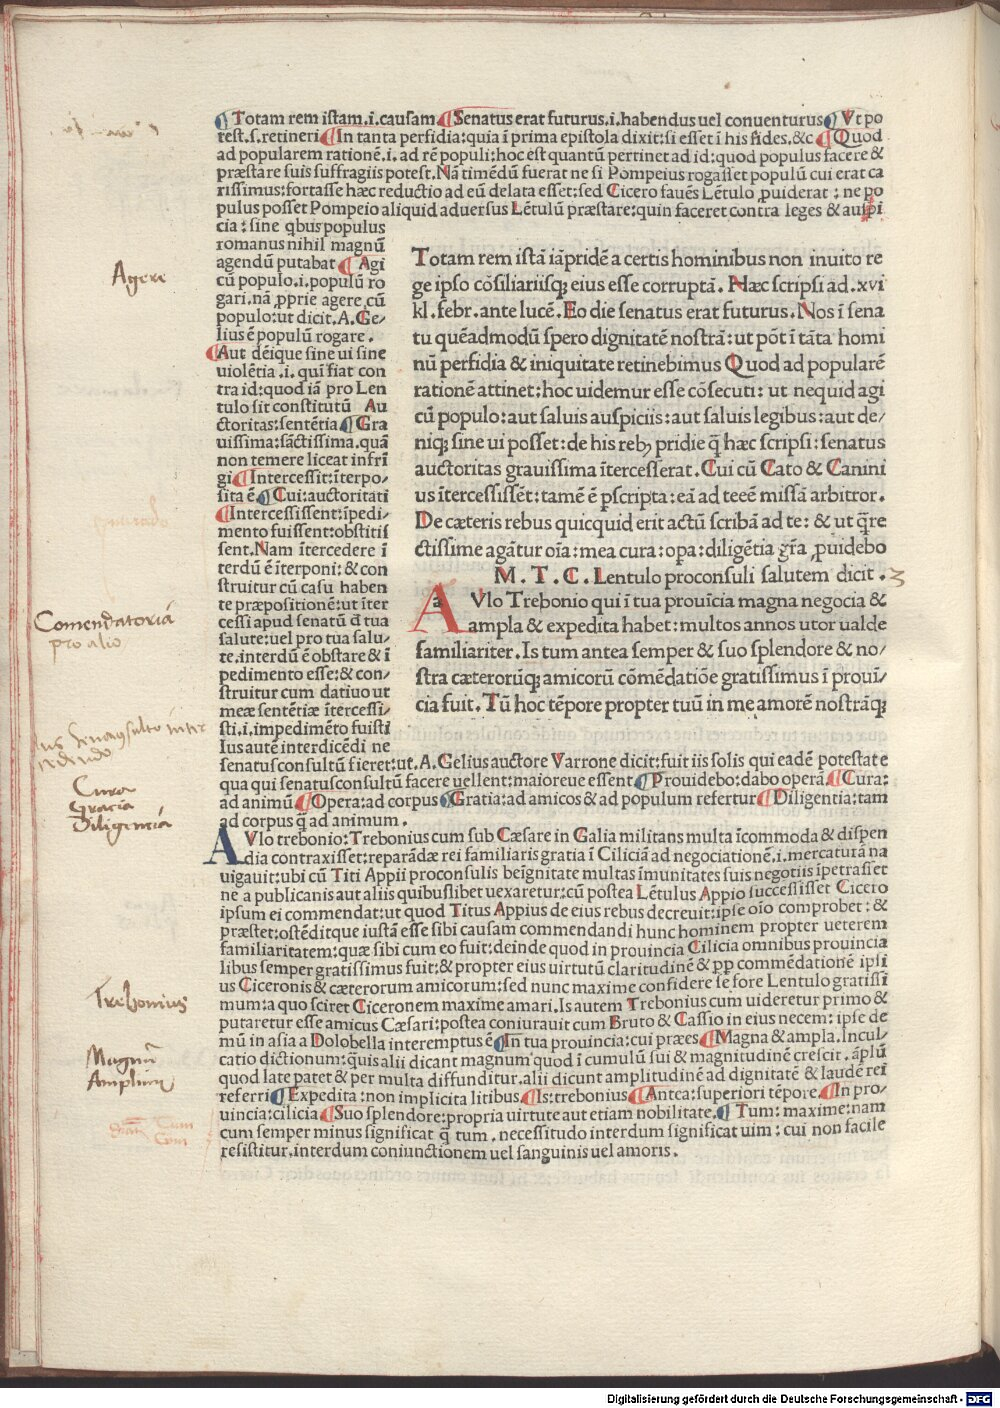 ¶Totam rem istam.i.causam¶Senatus erat futurus.i.habendus uel conuenturus¶Vt po
test.s.retineri¶In tanta perfidia:quia ī prima epistola dixit:si esset ī his fides.&c¶Quod
ad popularem rationē.i. ad rē populi:hoc est quantū pertinet ad id:quod populus facere &
præstare suis suffragiis potest.Nā timēdū fuerat ne si Pompeius rogasset populū cui erat ca
rissimus:fortasse hæc reductio ad eū delata esset:sed Cicero fauēs Lētulo ꝓuiderat : ne po
pulus posset Pompeio aliquid aduersus Lētulū præstare:quin faceret contra leges & auspi
cia:sine qbus populus
romanus nihil magnū
agendū putabat¶Agi
cū populo.i.populū ro
gari.nā ꝓprie agere cū
populo:ut dicit.A.Ge/
lius ē populū rogare.
¶Aut dēique sine ui sine
uiolētia.i. qui fiat con
tra id:quod iā pro Len
tulo sit constitutū Au
ctoritas:sentētia¶Gra
uissima:sāctissima.quā
non temere liceat infrī
gi¶Intercessit:īterpo/
sita ē¶Cui:auctoritati
¶Intercessissent:īpedi/
mento fuissent:obstitis
sent.Nam ītercedere ī
terdū ē īterponi:& con
struitur cū casu haben
te præpositionē:ut īter
cessi apud senatū d tua
salute:uel pro tua salu/
te.interdū ē obstare & ī
pedimento esse:& con/
struitur cum datiuo ut
meæ sentētiæ ītercessi/
sti.i.impedimēto fuisti
Ius autē interdicēdi ne
Totam rem istā iāpridē a certis hominibus non inuito re
ge ipso cōsiliariisq; eius esse corruptā. Hæc scripsi ad.xvi
kl.febr.ante lucē.Eo die senatus erat futurus.Nos ī sena
tu quēadmodū spero dignitatē nostrā:ut pōt ī tāta homi
nū perfidia & iniquitate retinebimus Quod ad popularē
rationē attinet:hoc uidemur esse cōsecuti: ut nequid agi
cū populo:aut saluis auspiciis:aut saluis legibus:aut de/
niq; sine ui posset:de his reb; pridie q̄ hæc scripsi:senatus
auctoritas grauissima ītercesserat.Cui cū Cato & Canini
us ītercessissēt:tamē ē pscripta:eā ad teeē missā arbitror.
De cæteris rebus quicquid erit actū scribā ad te: & ut q̄re
ctissime agātur oīa:mea cura:opa:diligētia gr̄a ꝓuidebo
M.T.C.Lentulo proconsuli salutem dicit. 3
A Vlo Trebonio qui ī tua prouīcia magna negocia &
ampla & expedita habet:multos annos utor ualde
familiariter.Is tum antea semper & suo splendore & no/
stra cæterorūq; amicorū cōmēdatiōe gratissimus ī prouī/
cia fuit.Tū hoc tēpore propter tuū in me amorē nostrāq;
senatusconsultū fieret:ut.A.Gelius auctore Varrone dicit:fuit iis solis qui eadē potestate
qua qui senatusconsultū facere uellent:maioreue essent¶Prouidebo:dabo operā¶Cura:
ad animū¶Opera:ad corpus¶Gratia:ad amicos & ad populum refertur¶Diligentia:tam
ad corpus q̄ ad animum.
A Vlo trebonio:Trebonius cum sub Cæsare in Galia militans multa īcommoda & dispen
dia contraxisset:reparādæ rei familiaris gratia ī Ciliciā ad negociationē.i.mercaturā na
uigauit:ubi cū Titi Appii proconsulis beīgnitate multas īmunitates suis negotiis īpetrasset
ne a publicanis aut aliis quibuslibet uexaretur:cū postea Lētulus Appio successisset Cicero
ipsum ei commendat:ut quod Titus Appius de eius rebus decreuit:ipse oīo comprobet : &
præstet:ostēditque iustā esse sibi causam commendandi hunc hominem propter ueterem
familiaritatem:quæ sibi cum eo fuit:deinde quod in prouincia Cilicia omnibus prouincia
libus semper gratissimus fuit:& propter eius uirtutū claritudinē & pp commēdationē ipsi
us Ciceronis & cæterorum amicorum:sed nunc maxime confidere se fore Lentulo gratissi
mum:a quo sciret Ciceronem maxime amari.Is autem Trebonius cum uideretur primo &
putaretur esse amicus Cæsari:postea coniurauit cum Bruto & Cassio in eius necem: ipse de
mū in asia a Dolobella interemptus ē¶In tua prouincia:cui præes¶Magna & ampla.Incul
catio dictionum:q̄uis alii dicant magnum quod ī cumulū sui & magnitudinē crescit. āplū
quod late patet & per multa diffunditur.alii dicunt amplitudinē ad dignitatē & laudē rei
referri¶Expedita:non implicita litibus¶Is:trebonius¶Antea:superiori tēpore¶In pro/
uincia:cilicia¶Suo splendore:propria uirtute aut etiam nobilitate.¶Tum:maxime:nam
cum semper minus significat q̄ tum. necessitudo interdum significat uim: cui non facile
resistitur.interdum coniunctionem uel sanguinis uel amoris.
Agere
Comendatoria
pro alio
Cura
Gracia
Diligencia
Trebonius
Magnum
Amplum
Cum
Digitalisierung gefördert durch die Deutsche Forschungsgemeinschaft - DFG